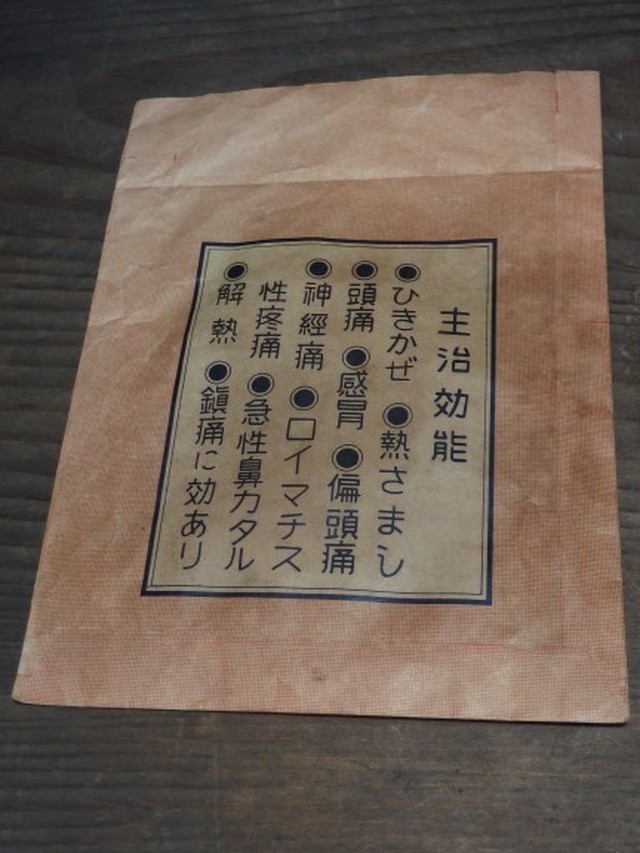 主治効能
●ひきかぜ●熱さまし
●頭痛●感冒●偏頭痛
●神經痛●ロイマチス
性疼痛●急性鼻カタル
●解熱●鎮痛に効あり